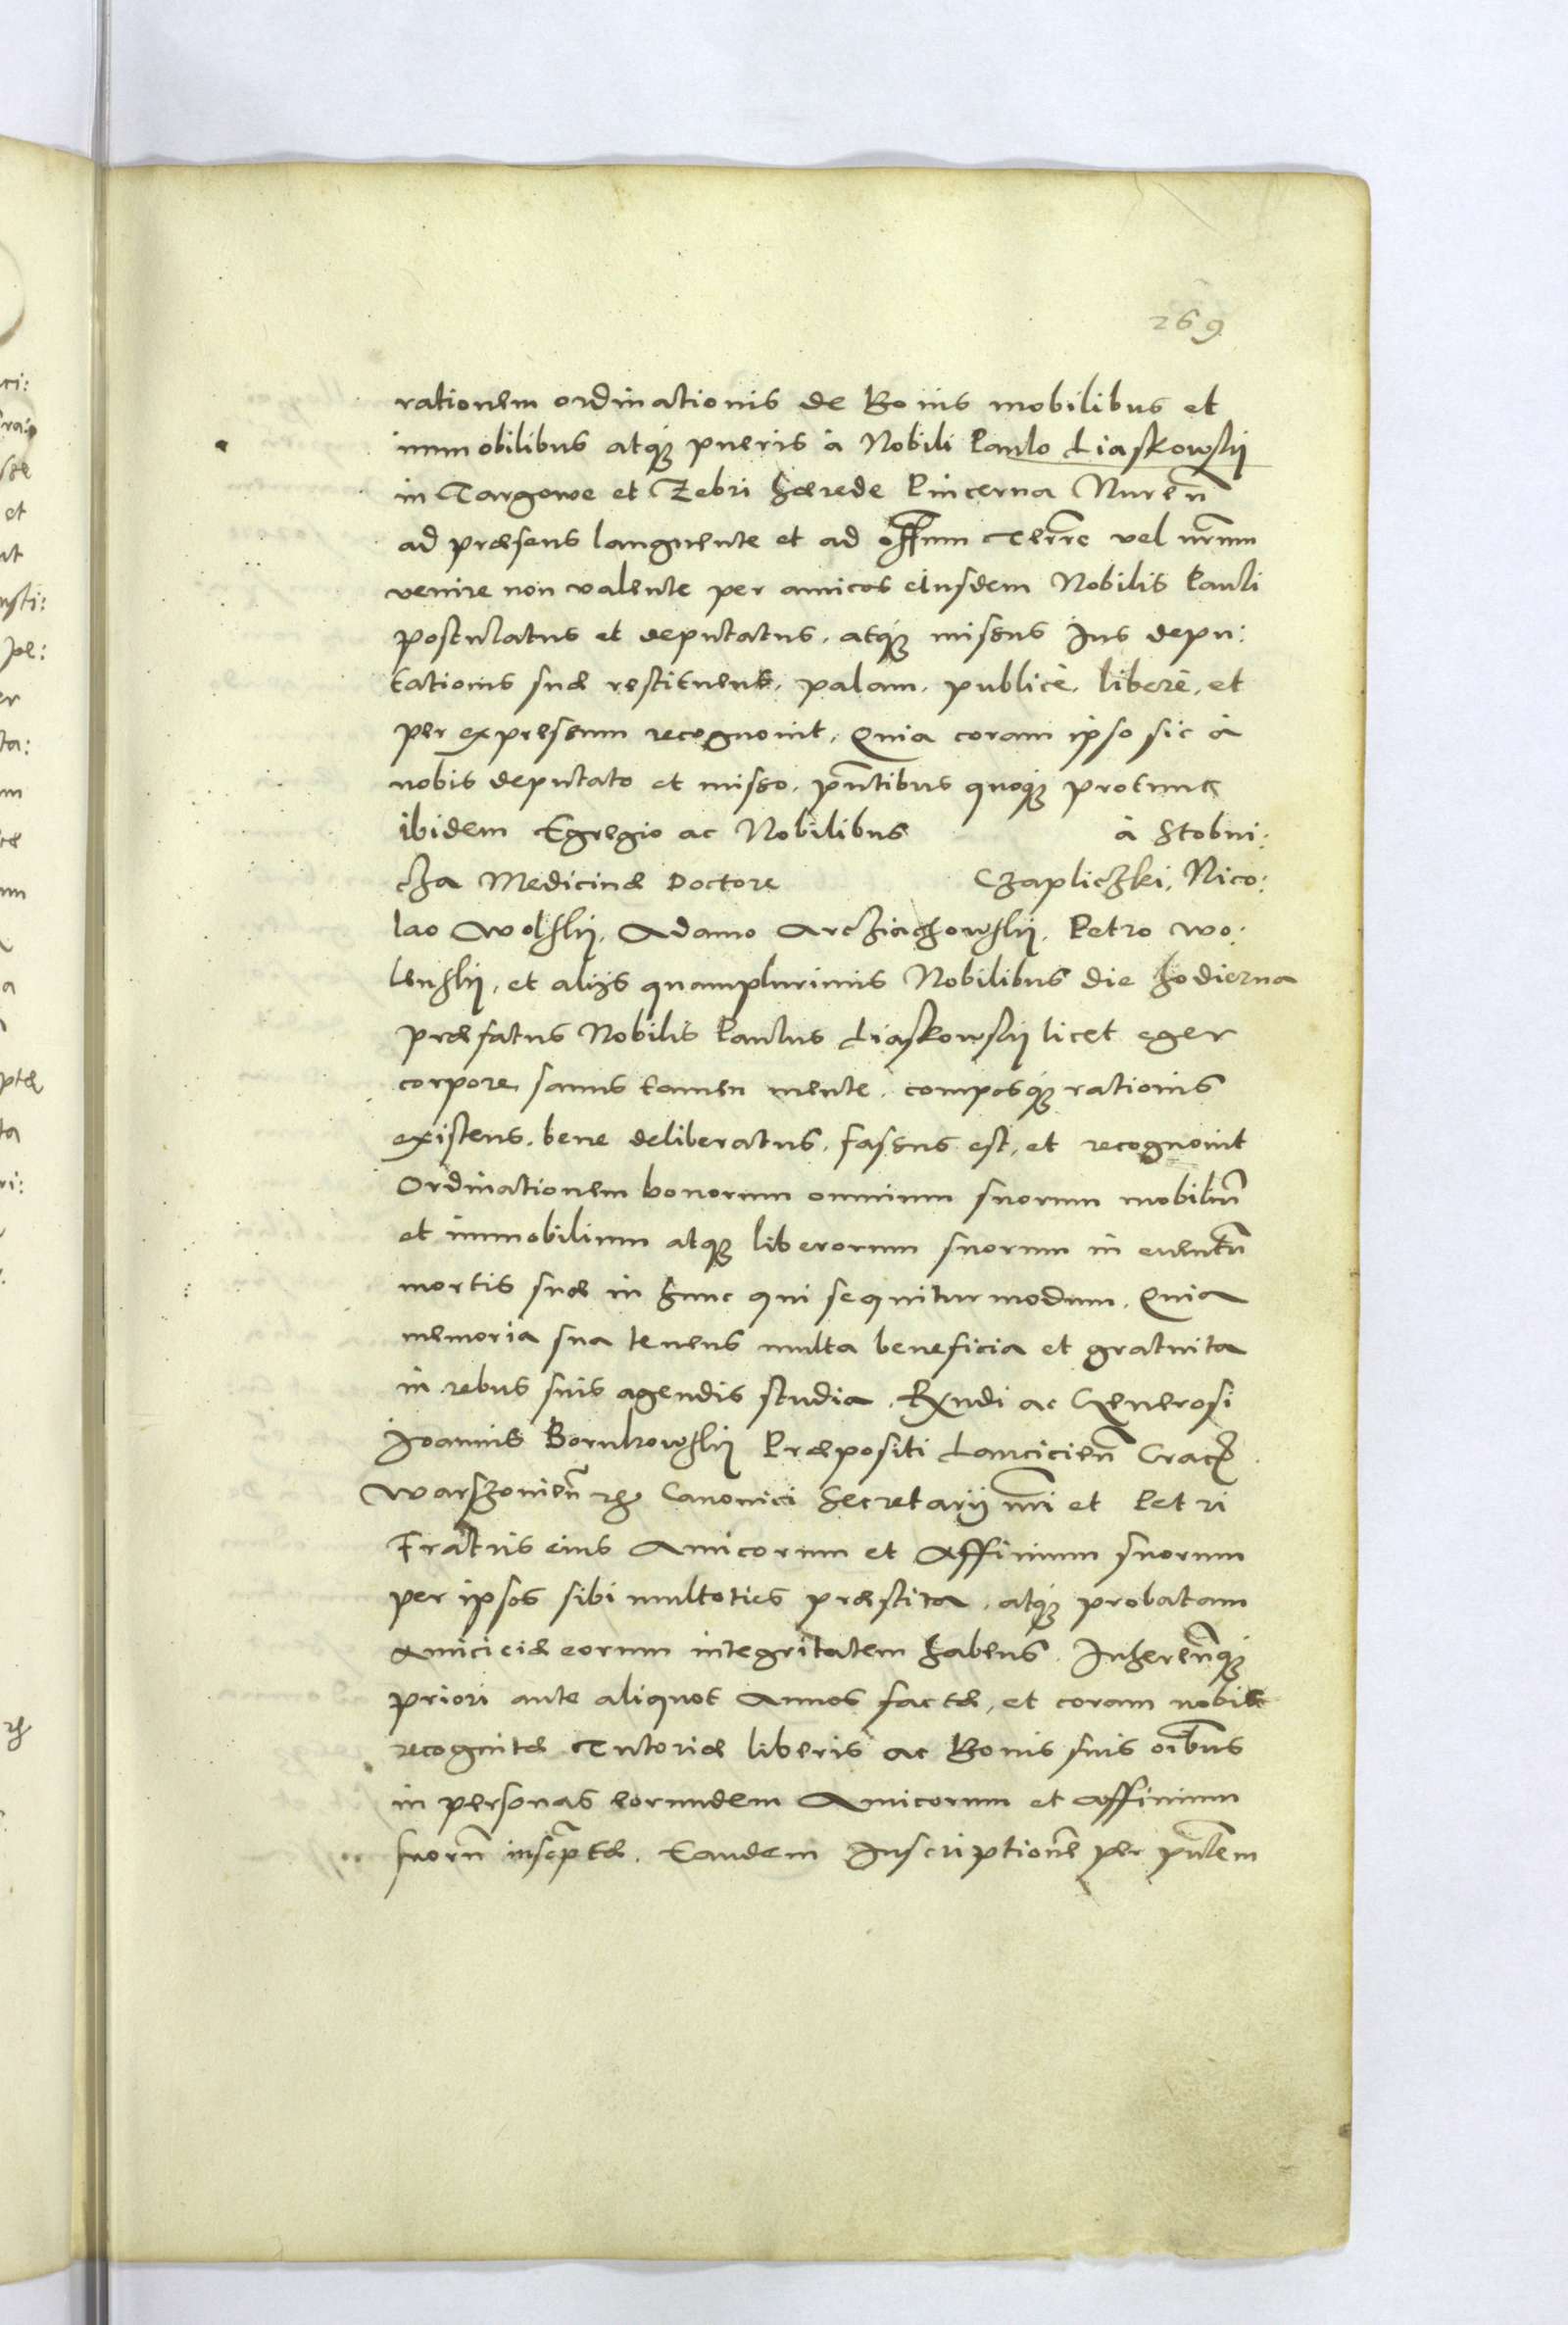 269
rationem ordinationis de Bonis mobilibus et
immobilibus atq́ꝫ pueris à Nobili Paulo Liaskowskij
in Targowe et Zebri hærede Pincerna Nuren̄
ad præsens languente et ad off̄um Terr̄e vel nr̄um
venire non valente per amicos eiusdem Nobilis Pauli
postulatus et deputatus, atq́ꝫ missus Jus depu:
tationis suæ restituens, palam, publicè, liberè, et
per expressum recognouit, Quia coram ipso sic à
nobis deputato et misso, pn̄tibus quoq́ꝫ protunc
ibidem Egregio ac Nobilibus à Stobni:
cza Medicinæ Doctore Czapliczki, Nico:
lao Wolskij, Adamo Arcziachowskij, Petro Wo:
lenskij, et alijs quamplurimis Nobilibus die hodierna
præfatus Nobilis Paulus Liaskowskij licet eger
corpore, sanus tamen mente, composq́ꝫ rationis
existens, bene deliberatus, fassus est, et recognouit
Ordinationem bonorum omnium suorum mobiliū
et immobilium atqꝫ liberorum suorum in euentū
mortis suæ in hunc qui sequitur modum. Quia
memoria sua tenens multa beneficia et gratuita
in rebus suis agendis studia, Rx̄ndi ac Generosi
Joannis Bornkowskij Præpositi Lanciciēn Crac̄
Warszouiēn ꝛc̄ Canonici Secretarij nr̄i et Petri
Fratris eius Amicorum et Affinium suorum
per ipsos sibi multoties præstita, atq́ꝫ probatam
Amiciciæ eorum integritatem habens. Inherēnq́ꝫ
priori ante aliquot Annos factæ, et coram nobis
recognitæ Tutoriæ liberis ac Bonis suis oībus
in personas eorundem Amicorum et Affinium
suorū inscp̄tæ. Eandem Inscriptionē per pn̄tem